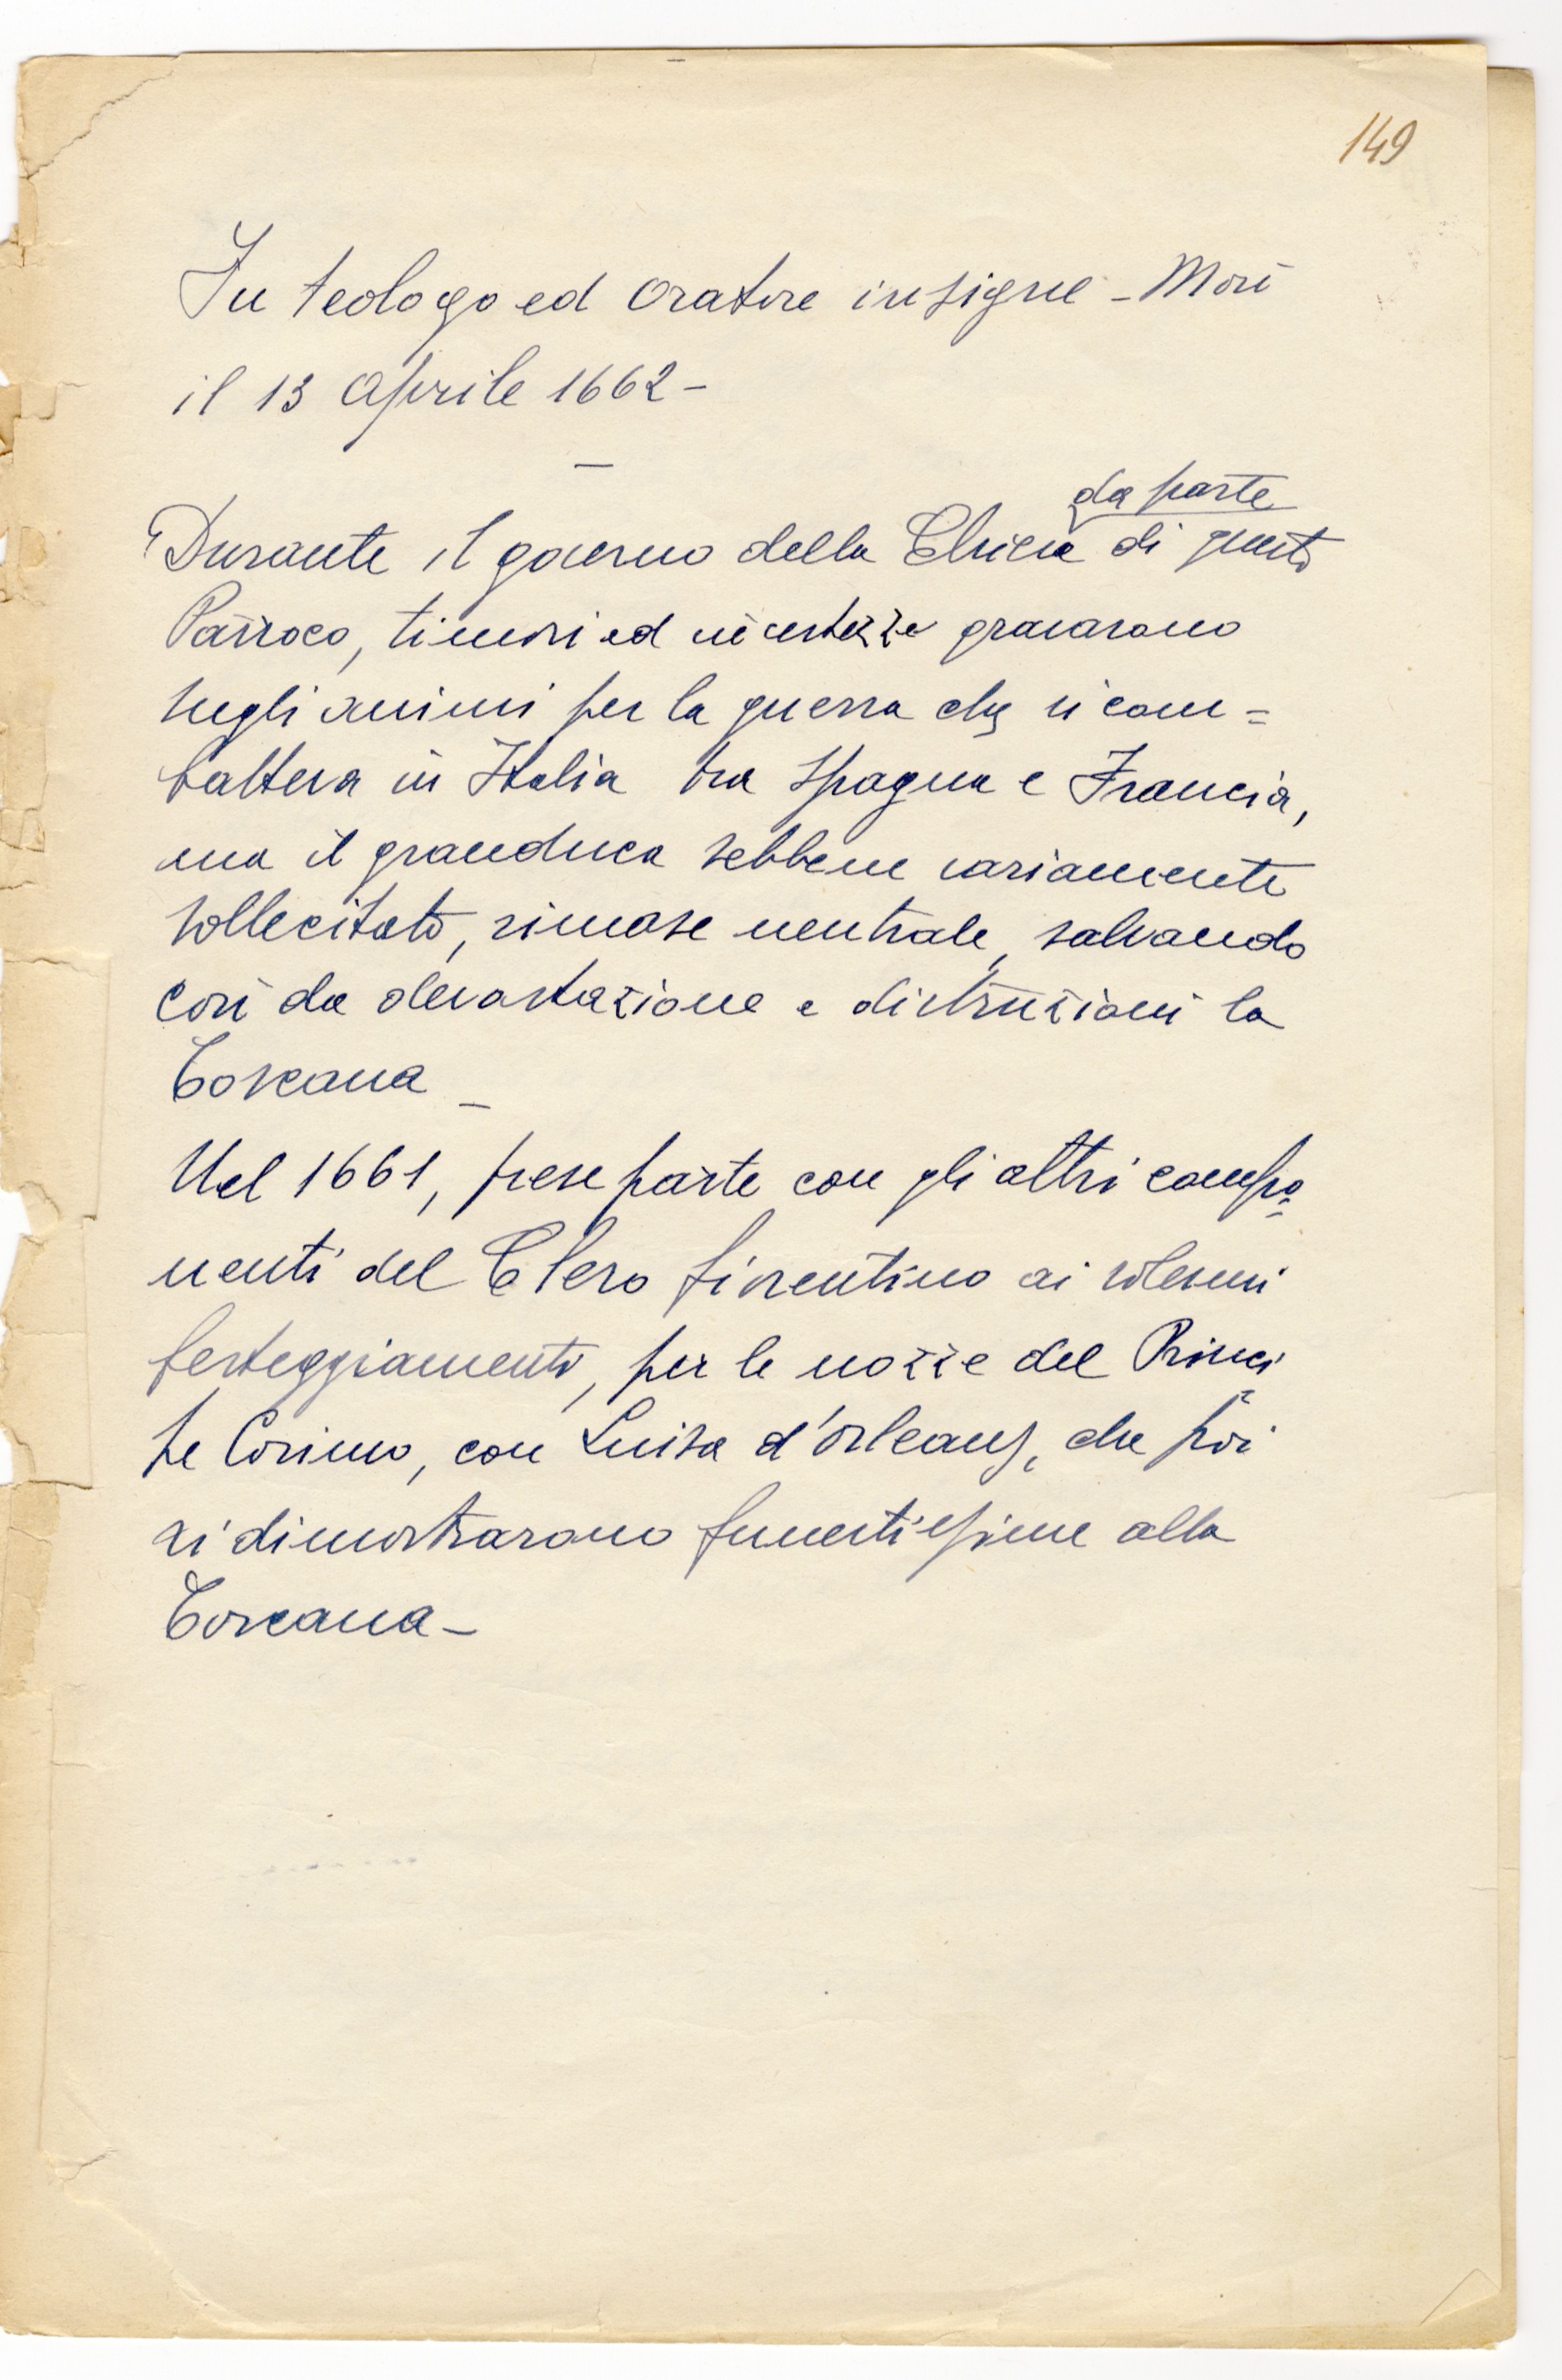 149
Fu teologo ed oratore insigne - Morì
il 13 Aprile 1662 -
—
da parte
Durante il governo della Chiesa di questo
Parroco, timori ed incertezze gravarono
sugli animi per la guerra che si com=
batteva in Italia tra Spagna e Francia,
ma il granduca sebbene variamente
sollecitato, rimase neutrale, salvando
così da devastazione e distruzioni la
Toscana -
Nel 1661, prese parte con gli altri compo=
nenti del Clero fiorentino ai solenni
festeggiamenti, per le nozze del Princi
pe Cosimo, con Luisa d'Orleans, che poi
si dimostrarono funestissime alla
Toscana -